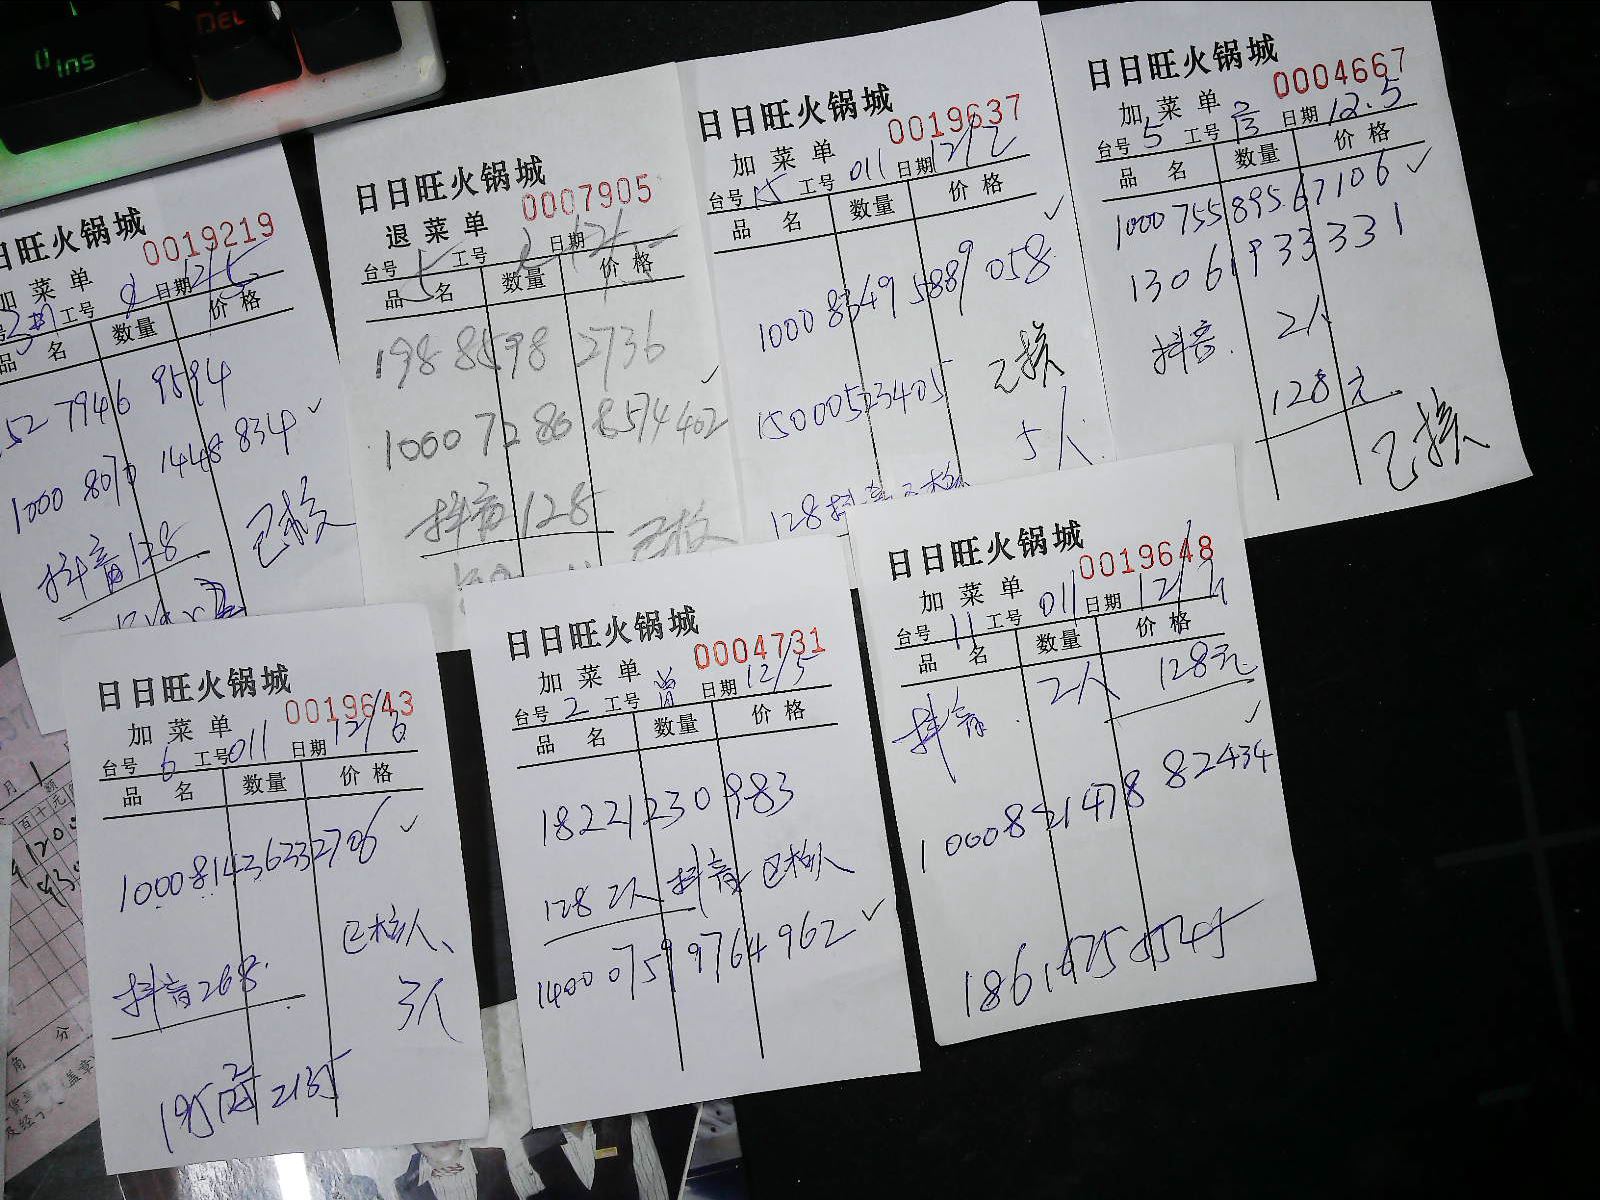 Ins
DEL
日日旺火锅城
0019219
加菜单
工号 日期 12/5
品名 数量 价格
52 7946 9594
1000 8070 1448 834 ✓
抖音128
已核
日日旺火锅城
0007905
退菜单
台号 5 工号 日期
品名 数量 价格
198 8598 2736
1000 7286 8574402 ✓
抖音128
已核
日日旺火锅城
0019637
加菜单
台号 15 工号 011 日期 12/2
品名 数量 价格
✓
1000 8349 5889 058
已核
15000523405
5人
128抖音已核
日日旺火锅城
0004667
加菜单
台号 5 工号 日期 12.5
品名 数量 价格
1000 755 895 67106 ✓
13061933331
抖音. 2人
128元
已核
日日旺火锅城
0019643
加菜单
台号 6 工号 011 日期 12/6
品名 数量 价格
1000814362332706 ✓
已核人、
抖音268.
3人
日日旺火锅城
0004731
加菜单
台号 2 工号 曾 日期 12/5
品名 数量 价格
18221230983
128 2人 抖音 已核人
1400 0759 9764 962 ✓
日日旺火锅城
0019648
加菜单
台号 11 工号 011 日期
品名 数量 价格
抖音. 2人 128元
✓
1000821478 82434
月
百十元
角 分
(盖章)